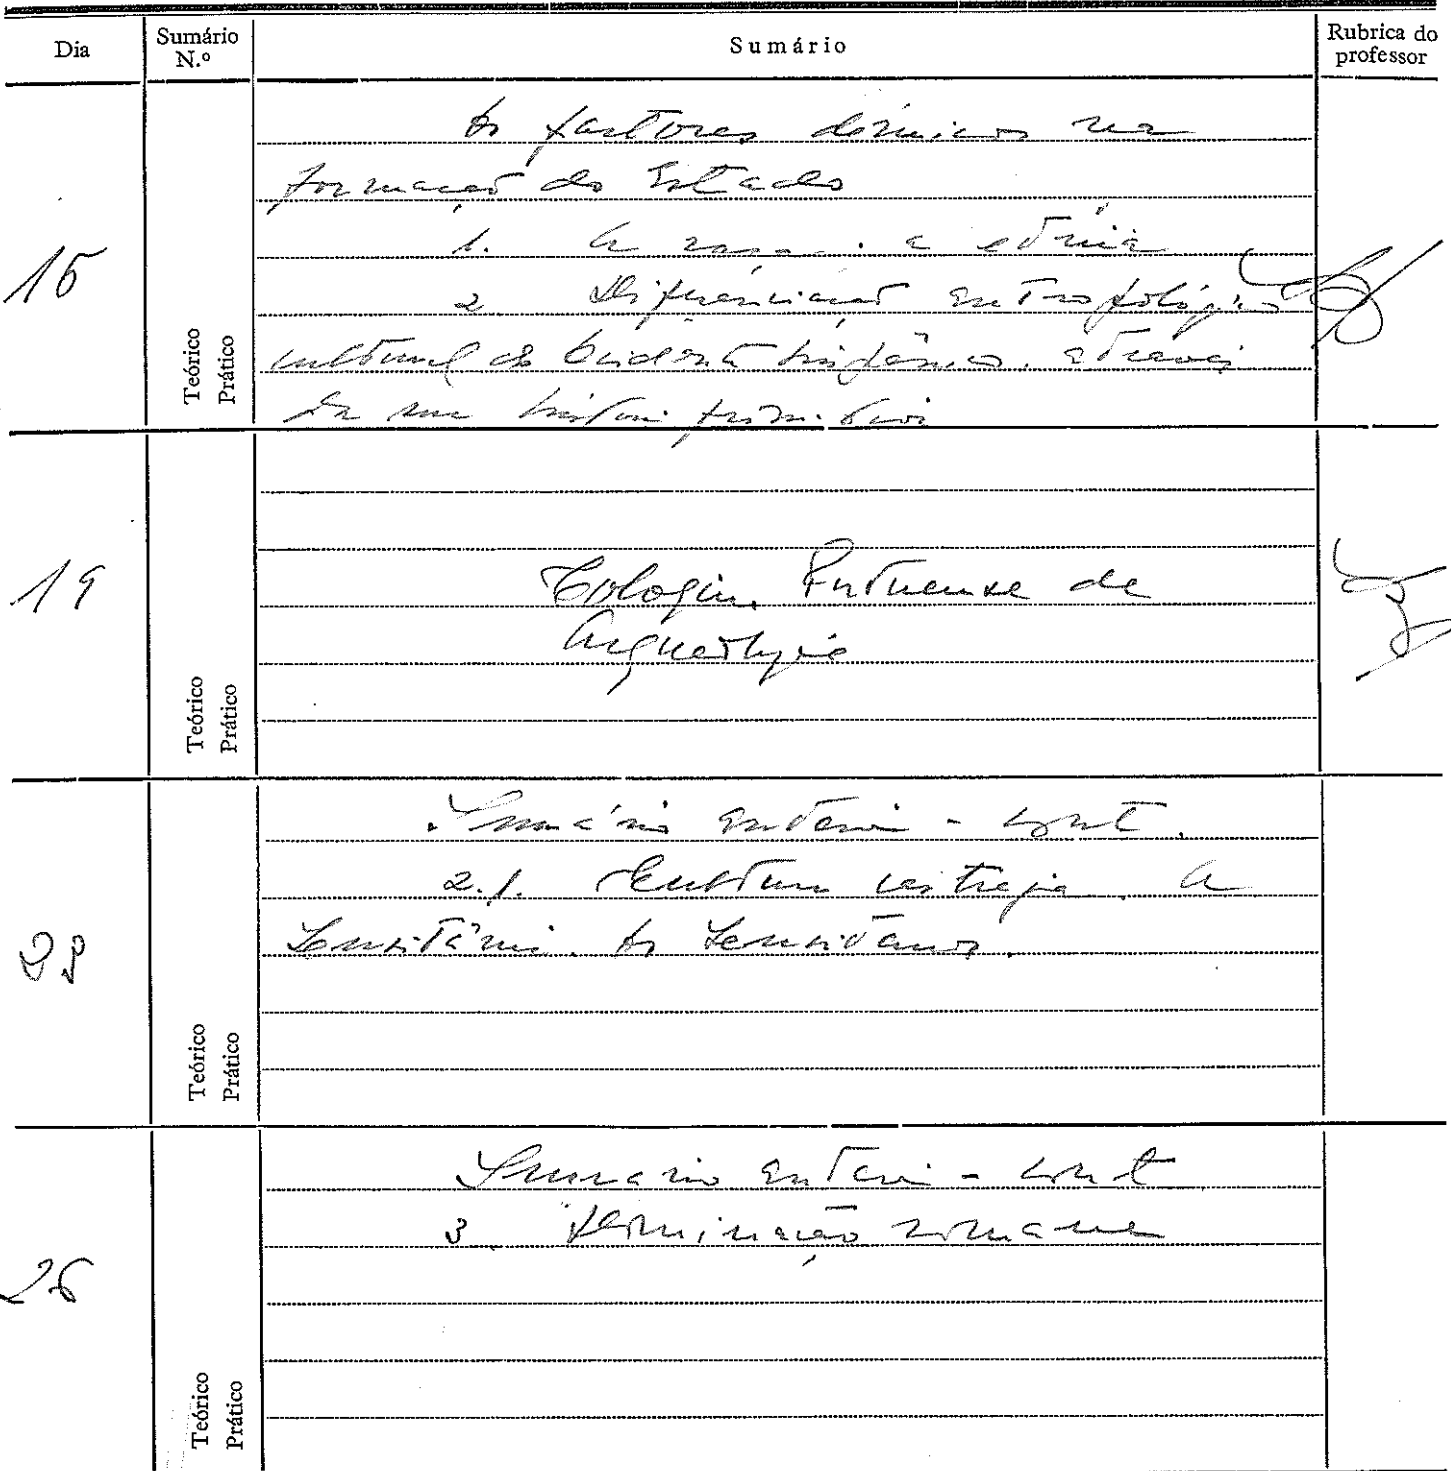 Dia
Sumário N.º
Sumário
Rubrica do professor
15
Teórico
Prático
Os factores démicos na
formação do Estado
1. A raça e a etnia
2 Diferenciação antropológico
cultural do Ocidente hispânico. através
da sua história primitiva
19
Teórico
Prático
Colóquio Portuense de
Arqueologia
22
Teórico
Prático
Sumário anterior - cont.
2.1. Cultura castreja. A
Lusitânia. Os Lusitanos.
26
Teórico
Prático
Sumário anterior - cont
3 Dominação romana